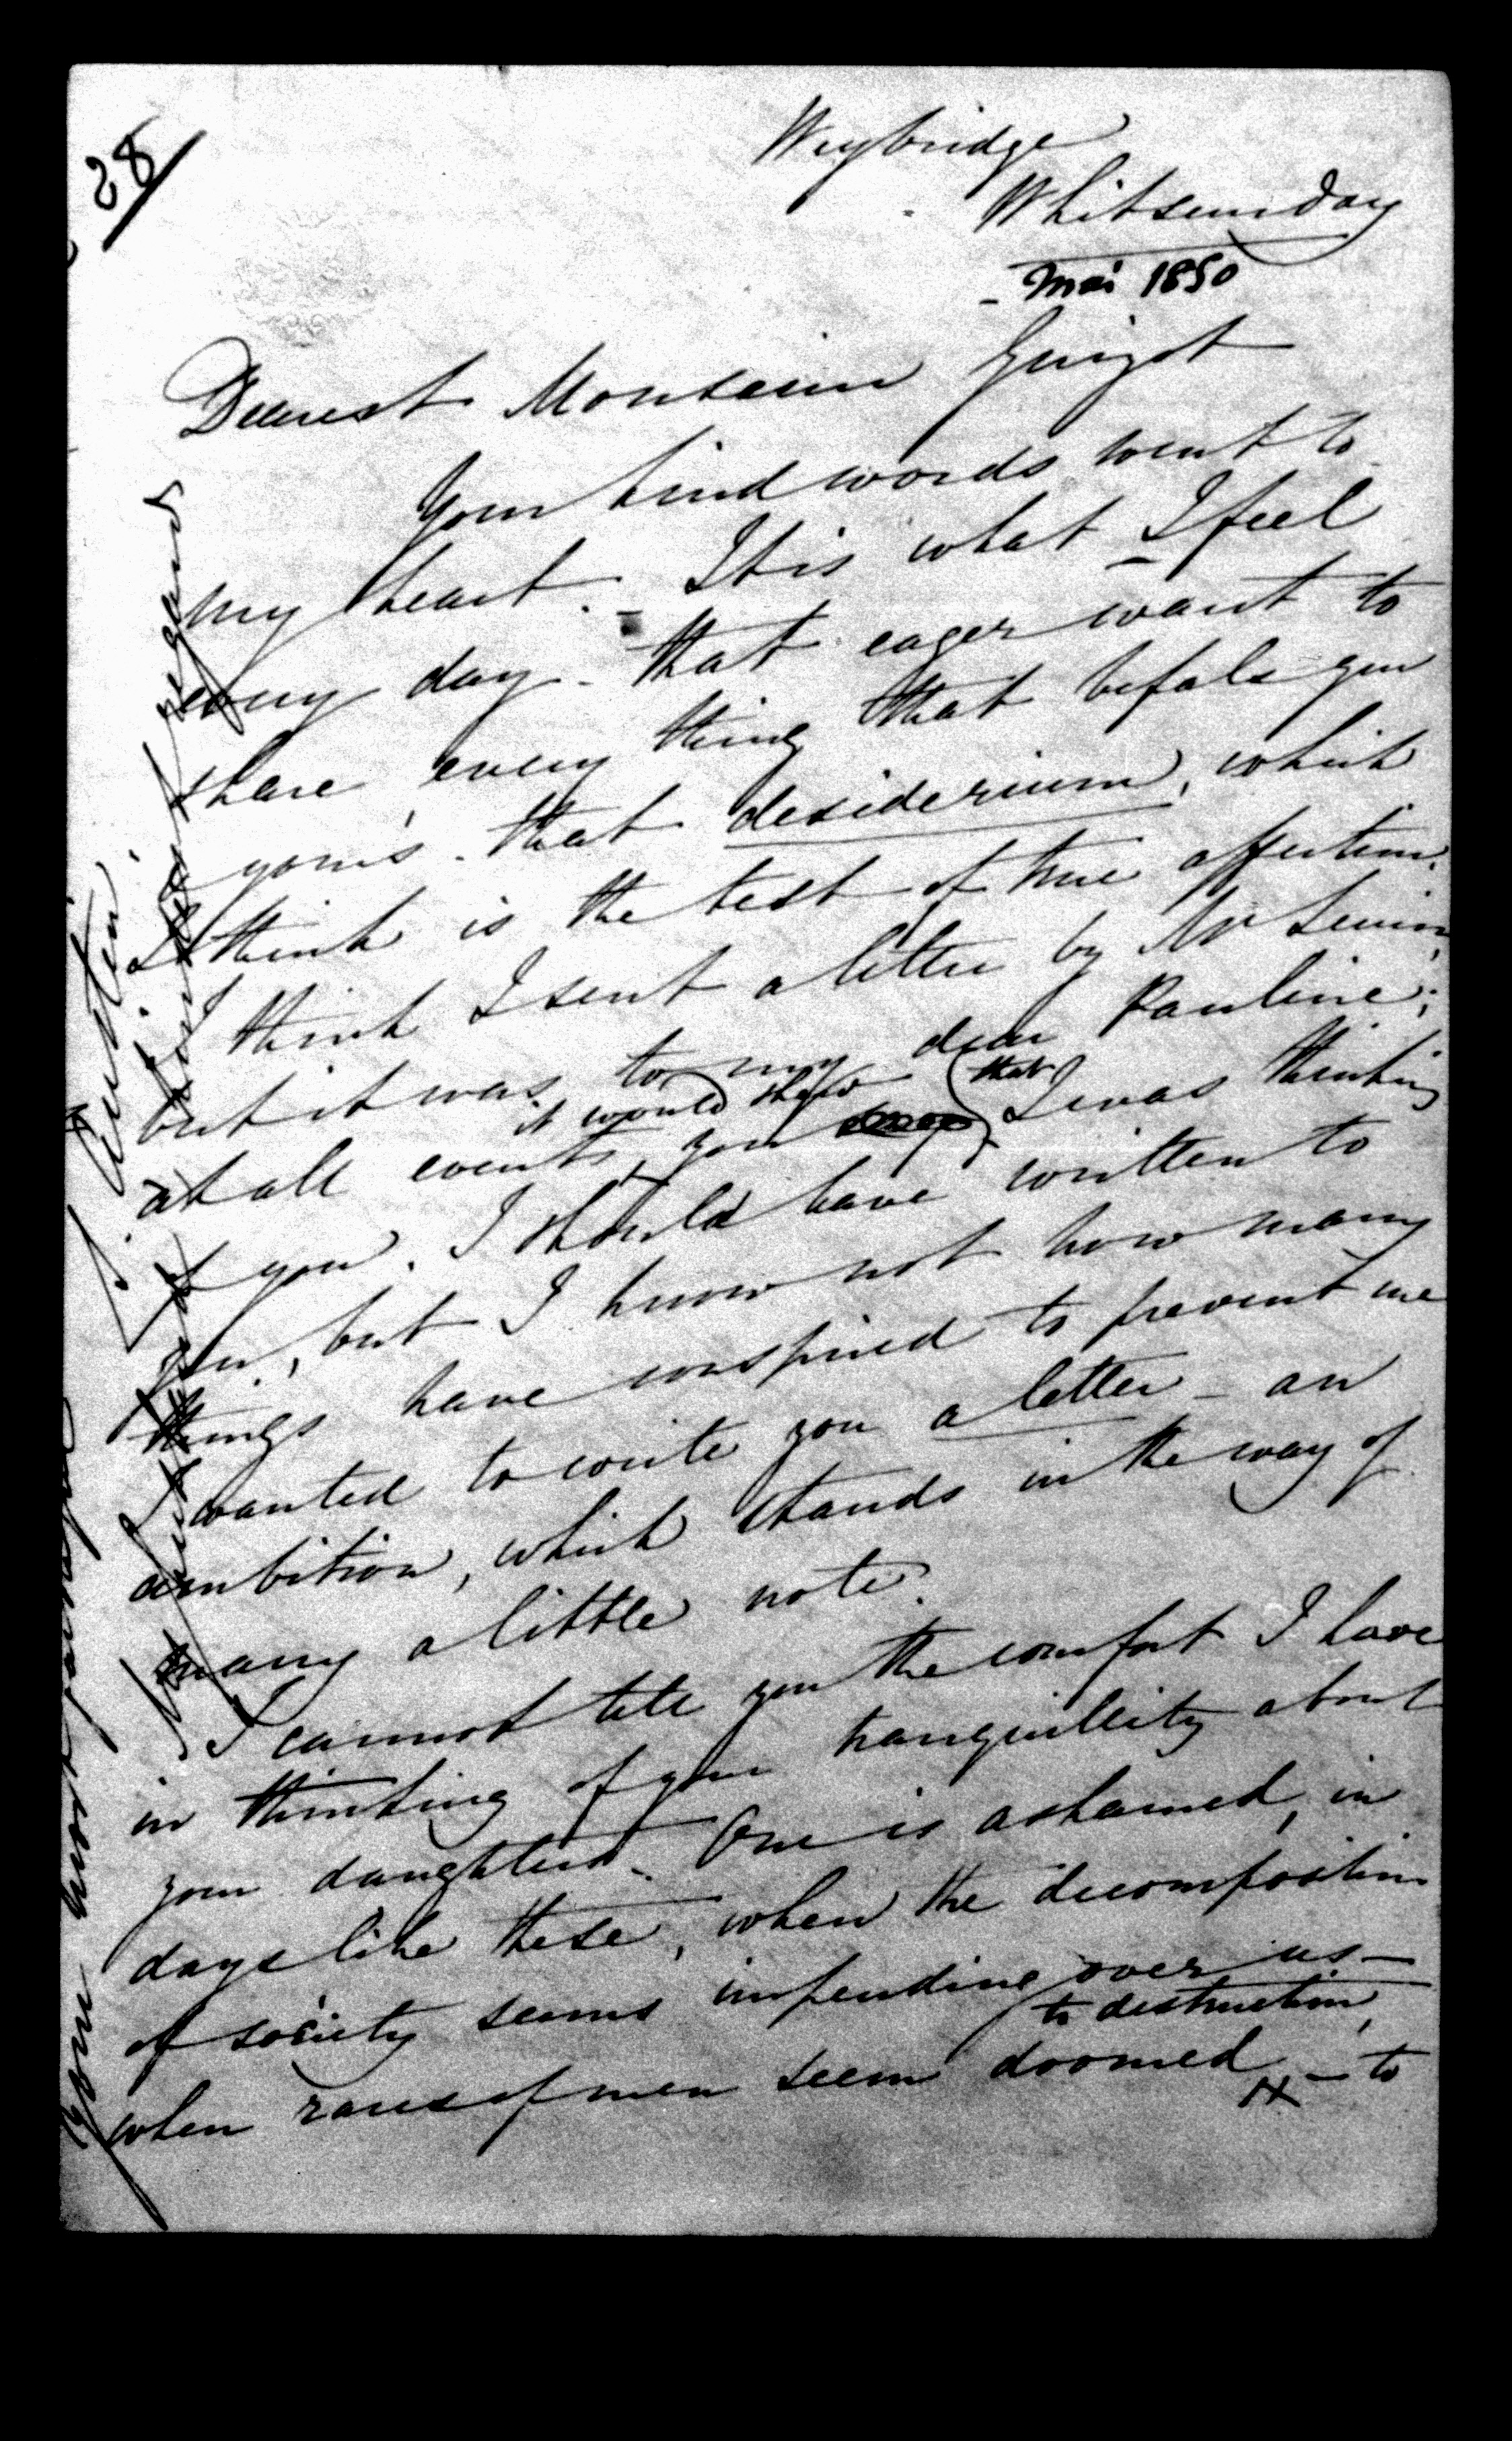 28
Weybridge
Whitsunday
- Mai 1850
Dearest Monsieur Guizot
Your kind words went to
my heart. - It is what I feel
every day - that eager want to
share every thing that befals you
& yours - that desiderium, which
I think is the test of true affection.
I think I sent a letter by Mr Senior,
but it was to my dear Pauline;
at all events, it would shew you that I was thinking
of you. I should have written to
you, but I know not how many
things have conspired to prevent me
I wanted to write you a letter - an
ambition, which stands in the way of
many a little note.
I cannot tell you the comfort I have
in thinking of your tranquillity about
your daughters. One is ashamed, in
days like these, when the decomposition
of society seems impending over us -
when races of men seem doomed to destruction, - to
S. Austin